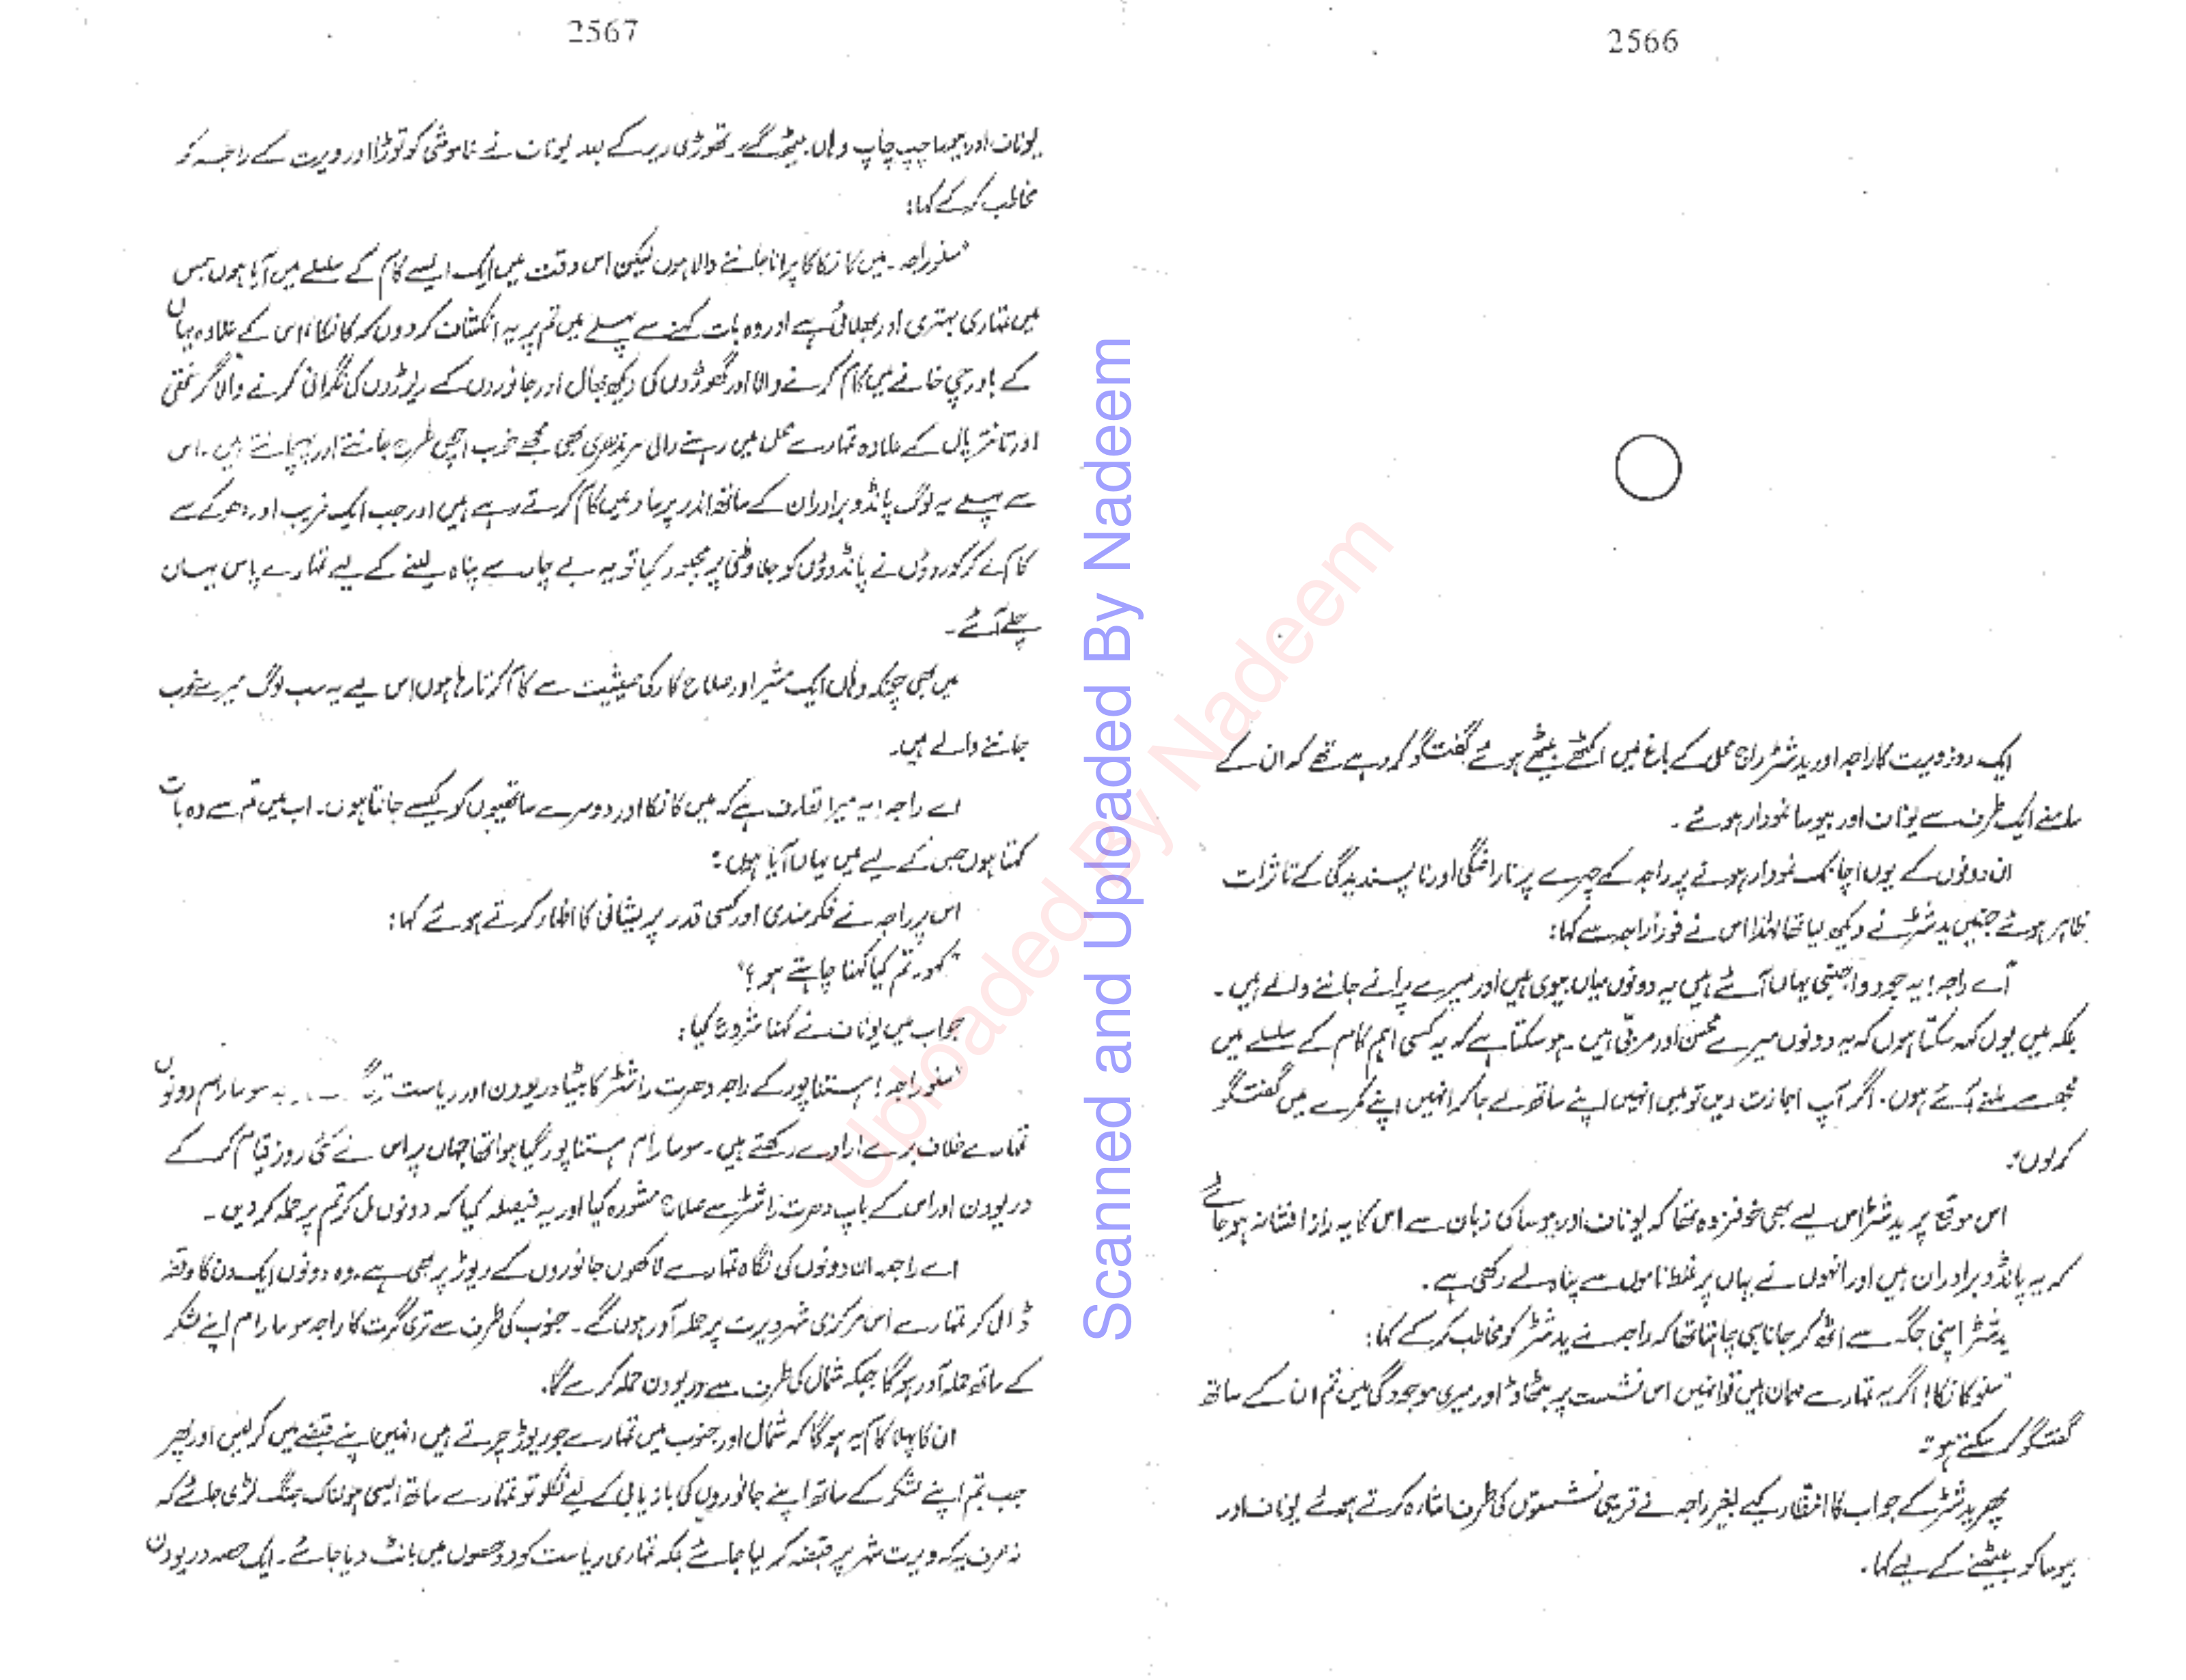 2566
ایک روز ویرت کا راجہ اور یدشٹر راج محل کے باغ میں اکٹھے بیٹھے ہوئے گفتگو کر رہے تھے کہ ان کے
سامنے ایک طرف سے یوناف اور بیوسا نمودار ہوئے۔
ان دونوں کے یوں اچانک نمودار ہونے پر راجہ کے چہرے پر ناراضگی اور ناپسندیدگی کے تاثرات
ظاہر ہوئے جنہیں یدشٹر نے دیکھ لیا تھا لہٰذا اس نے فوراً راجہ سے کہا:
"اے راجہ! یہ جو دو اجنبی یہاں آئے ہیں یہ دونوں میاں بیوی ہیں اور میرے پرانے جاننے والے ہیں۔
بلکہ میں یوں کہہ سکتا ہوں کہ یہ دونوں میرے محسن اور مربی ہیں۔ ہو سکتا ہے کہ یہ کسی اہم کام کے سلسلے میں
مجھ سے ملنے آئے ہوں۔ اگر آپ اجازت دیں تو میں انہیں اپنے ساتھ لے جا کر انہیں اپنے کمرے میں گفتگو
کر لوں"۔
اس موقع پر یدشٹر اس لیے بھی خوفزدہ تھا کہ یوناف اور بیوسا کی زبان سے اس کا یہ راز افشا نہ ہو جائے
کہ یہ پانڈو برادران ہیں اور انہوں نے یہاں پر غلط ناموں سے پناہ لے رکھی ہے۔
یدشٹر اپنی جگہ سے اٹھ کر جانا ہی چاہتا تھا کہ راجہ نے یدشٹر کو مخاطب کر کے کہا:
"سنو کانکا! اگر یہ تمہارے مہمان ہیں تو انہیں اس نشست پر بٹھاؤ اور میری موجودگی میں تم ان کے ساتھ
گفتگو کر سکتے ہو"۔
پھر یدشٹر کے جواب کا انتظار کیے بغیر راجہ نے قریبی نشستوں کی طرف اشارہ کرتے ہوئے یوناف اور
بیوسا کو بیٹھنے کے لیے کہا۔
2567
یوناف اور بیوسا چپ چاپ وہاں بیٹھ گئے۔ تھوڑی دیر کے بعد یوناف نے خاموشی کو توڑا اور ویرت کے راجہ کو
مخاطب کر کے کہا:
"سنو راجہ۔ میں کانکا کا پرانا جاننے والا ہوں لیکن اس وقت میں ایک ایسے کام کے سلسلے میں آیا ہوں جس
میں تمہاری بہتری اور بھلائی ہے اور وہ بات کہنے سے پہلے میں تم پر یہ انکشاف کر دوں کہ کانکا، اس کے علاوہ یہاں
کے باورچی خانے میں کام کرنے والا اور گھوڑوں کی دیکھ بھال اور جانوروں کے ریوڑوں کی نگرانی کرنے والا گرنتھی
اور تانتر پال کے علاوہ تمہارے محل میں رہنے والی سرندھری بھی مجھے خوب اچھی طرح جانتے اور پہچانتے ہیں۔ اس
سے پہلے یہ لوگ پانڈو برادران کے ساتھ اندر پرساد میں کام کرتے رہے ہیں اور جب ایک فریب اور دھوکے سے
کام لے کر کوروؤں نے پانڈوؤں کو جلاوطنی پر مجبور کیا تو یہ بے چارے پناہ لینے کے لیے تمہارے پاس یہاں
چلے آئے۔
میں بھی چونکہ وہاں ایک مشیر اور صلاح کار کی حیثیت سے کام کرتا رہا ہوں اس لیے یہ سب لوگ میرے خوب
جاننے والے ہیں۔
اے راجہ! یہ میرا تعارف ہے کہ میں کانکا اور دوسرے ساتھیوں کو کیسے جانتا ہوں۔ اب میں تم سے وہ بات
کہتا ہوں جس کے لیے میں یہاں آیا ہوں"۔
اس پر راجہ نے فکرمندی اور کسی قدر پریشانی کا اظہار کرتے ہوئے کہا:
"کہو۔ تم کیا کہنا چاہتے ہو؟"
جواب میں یوناف نے کہنا شروع کیا:
"سنو راجہ! ہستناپور کے راجہ دھرت راشٹر کا بیٹا دریودن اور ریاست سوسارام دونوں
تمہارے خلاف برے ارادے رکھتے ہیں۔ سوسارام ہستناپور گیا ہوا تھا جہاں پر اس نے کئی روز قیام کر کے
دریودن اور اس کے باپ دھرت راشٹر سے صلاح مشورہ کیا اور یہ فیصلہ کیا کہ دونوں مل کر تم پر حملہ کر دیں۔
اے راجہ۔ ان دونوں کی نگاہ تمہارے لاکھوں جانوروں کے ریوڑ پر بھی ہے۔ وہ دونوں ایک دن کا وقفہ
ڈال کر تمہارے اس مرکزی شہر ویرت پر حملہ آور ہوں گے۔ جنوب کی طرف سے تری گرت کا راجہ سوسارام اپنے لشکر
کے ساتھ حملہ آور ہو گا جبکہ شمال کی طرف سے دریودن حملہ کرے گا۔
ان کا پہلا کام یہ ہو گا کہ شمال اور جنوب میں تمہارے جو ریوڑ چرتے ہیں، انہیں اپنے قبضے میں کر لیں اور پھر
جب تم اپنے لشکر کے ساتھ اپنے جانوروں کی بازیابی کے لیے نکلو تو تمہارے ساتھ ایسی ہولناک جنگ لڑی جائے کہ
نہ صرف یہ کہ ویرت شہر پر قبضہ کر لیا جائے بلکہ تمہاری ریاست کو دو حصوں میں بانٹ دیا جائے۔ ایک حصہ دریودن
Scanned and Uploaded By Nadeem
Uploaded By Nadeem